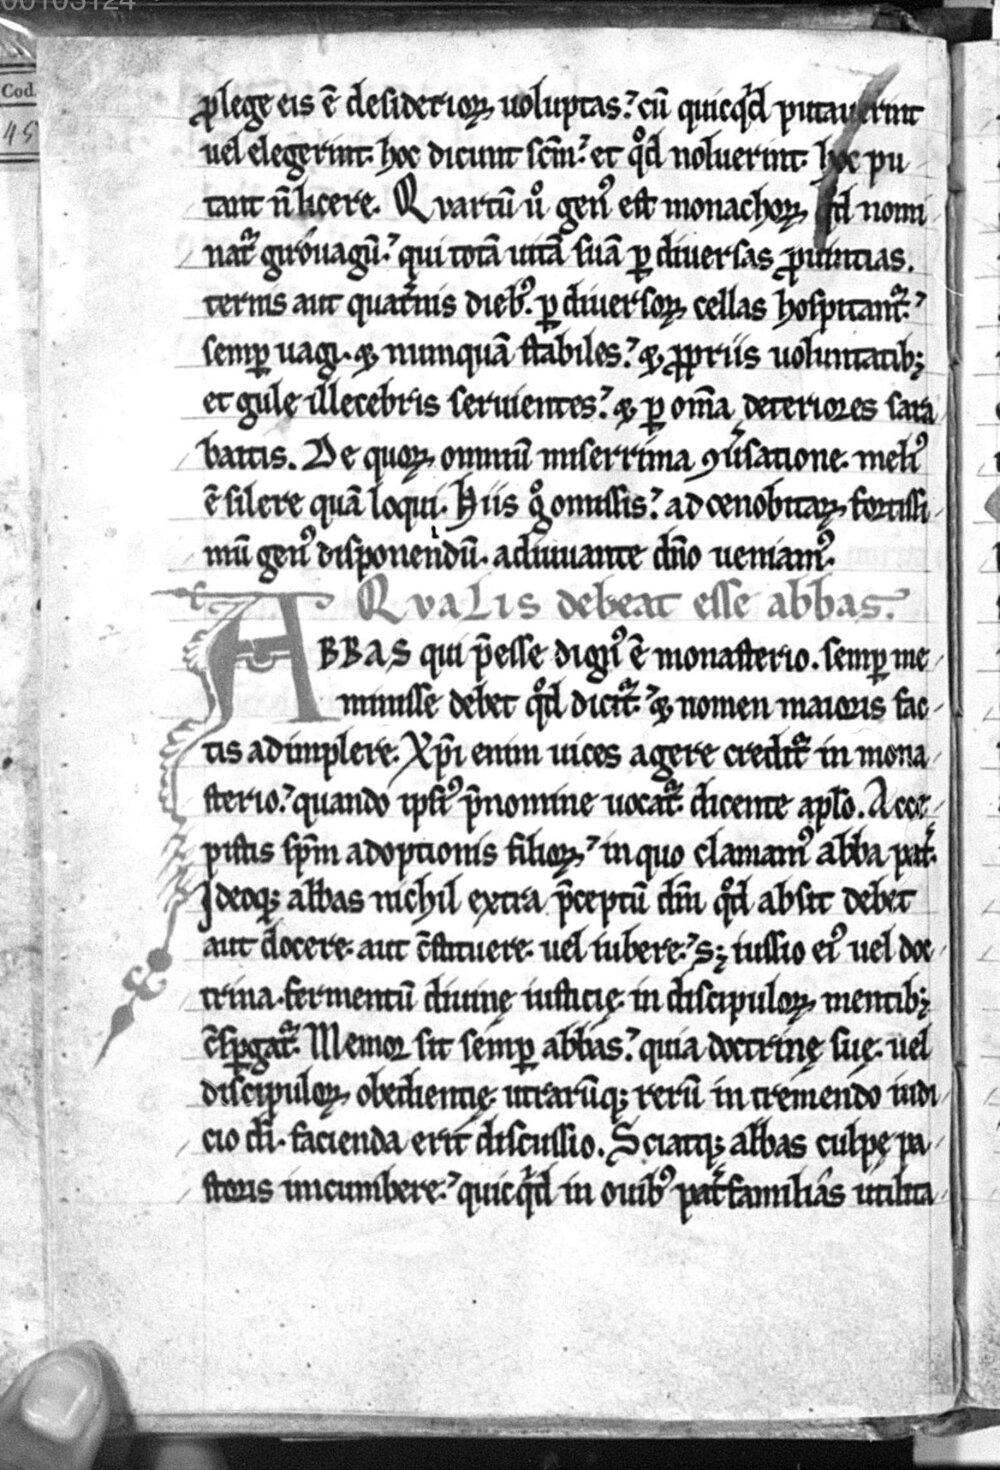 00103124
Cod.
45
ꝓlege eis ē desideriorꝝ uoluptas? cū quicq̇d putauerint
uel elegerint. hoc dicunt sc̄m? et qͦd noluerint. hoc pu
tant n̄ licere. Qvartū u̇ο genꝰ est monachorꝝ qd nomi
nat᷑ girouagū? qui totā uitā suā ꝑ diuersas ꝓuintias.
ternis aut quat̄nis diebꝰ. ꝑ diuersorꝝ cellas hospitant᷑?
semꝑ uagi. ⁊ numquā stabiles? ⁊ ꝓpriis uoluntatib;
et gulę illecebris seruientes? ⁊ ꝑ om̄a deteriores sara
baitis. De quorꝝ omniū miserrima ꝯu̓satione. meliꝰ
ē silere quā loqui. Hiis gͦ omissis? ad cenobitarꝝ fortissi
mū genꝰ disponendū. adiuuante dn̄o ueniamꝰ.
Qvalis debeat esse abbas.
ABBAS qui p̄esse dignꝰ ē monasterio. semꝑ me
minisse debet qͦd dicit᷑? ⁊ nomen maioris fac
tis adimplere. Xp̄i enim uices agere credit᷑ in mona
sterio? quando ipsiꝰ p̄nomine uocat᷑. dicente aplo. Acce
pistis sp̄m adoptionis filiorꝝ? in quo clamamꝰ abba pat̄.
Ideoq; abbas nichil extra p̄ceptū dn̄i qͦd absit debet
aut docere. aut c̄stituere. uel iubere? s; iussio eiꝰ uel doc
trina. fermentū diuinę iusticię. in discipulorꝝ mentib;
c̄sꝑgat᷑. Memor sit semꝑ abbas? quia doctrinę suę. uel
discipulorꝝ obedientię. utrarūq; rerū in tremendo iudi
cio di. facienda erit discussio. Sciatq; abbas culpę pa
storis incumbere? quicq̇d in ouibꝰ pat̄familias utilita